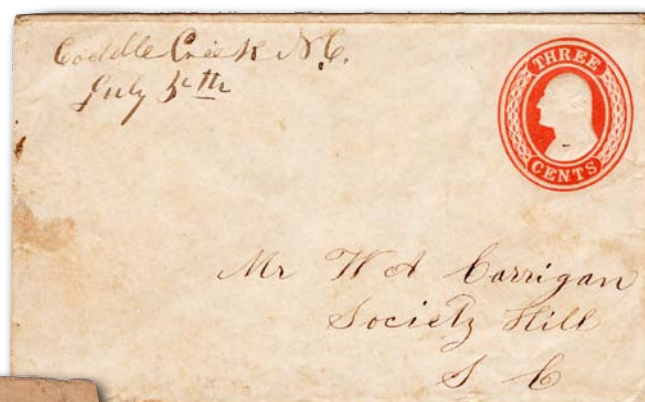 Coddle Creek N.C.
July 5th
THREE
CENTS
Mr W A Carrigan
Society Hill
S C